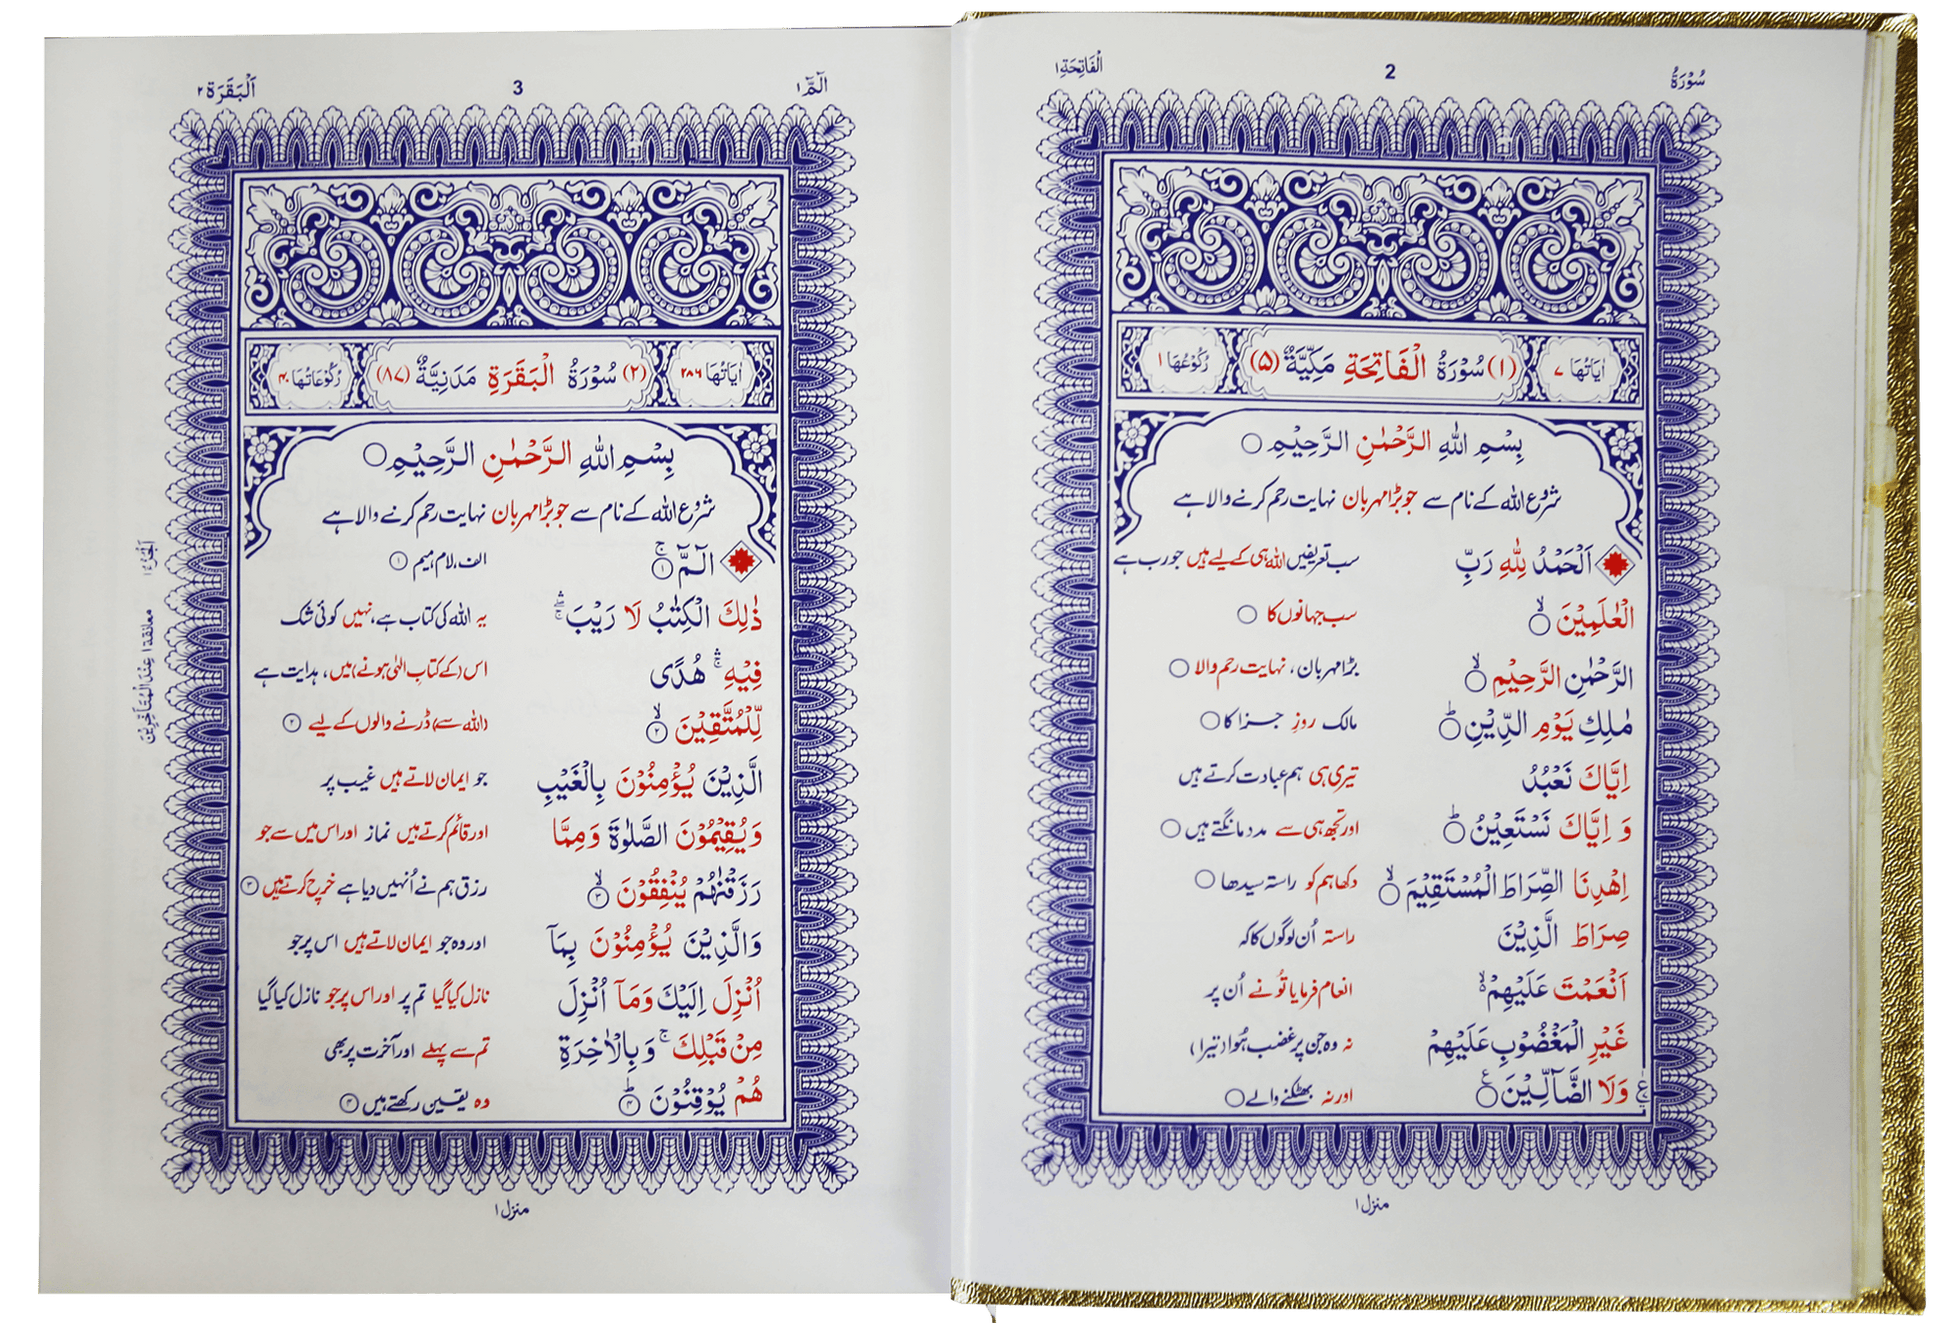 سُوْرَةُ 2 اَلْفَاتِحَةِ ۱
اٰيَاتُهَا ۷ (۱) سُوْرَةُ الْفَاتِحَةِ مَكِّيَّةٌ (۵) رُكُوْعُهَا ۱
بِسْمِ اللّٰهِ الرَّحْمٰنِ الرَّحِيْمِ ○
شروع اللہ کے نام سے جو بڑا مہربان نہایت رحم کرنے والا ہے
اَلْحَمْدُ لِلّٰهِ رَبِّ سب تعریفیں اللہ ہی کے لیے ہیں جو رب ہے
الْعٰلَمِيْنَ ۙ○ سب جہانوں کا ○
الرَّحْمٰنِ الرَّحِيْمِ ۙ○ بڑا مہربان، نہایت رحم والا ○
مٰلِكِ يَوْمِ الدِّيْنِ ؕ○ مالک روزِ جزا کا ○
اِيَّاكَ نَعْبُدُ تیری ہی ہم عبادت کرتے ہیں
وَ اِيَّاكَ نَسْتَعِيْنُ ؕ○ اور تجھ ہی سے مدد مانگتے ہیں ○
اِهْدِنَا الصِّرَاطَ الْمُسْتَقِيْمَ ۙ○ دکھا ہم کو راستہ سیدھا ○
صِرَاطَ الَّذِيْنَ راستہ اُن لوگوں کا کہ
اَنْعَمْتَ عَلَيْهِمْ ۙ۬ انعام فرمایا تُو نے اُن پر
غَيْرِ الْمَغْضُوْبِ عَلَيْهِمْ نہ وہ جن پر غضب ہُوا (تیرا)
وَلَا الضَّآلِّيْنَ ۧ○ اور نہ بھٹکنے والے ○
منزل ۱
الٓمّٓ ۱ 3 اَلْبَقَرَة ۲
اٰيَاتُهَا ۲۸۶ (۲) سُوْرَةُ الْبَقَرَةِ مَدَنِيَّةٌ (۸۷) رُكُوْعَاتُهَا ۴۰
بِسْمِ اللّٰهِ الرَّحْمٰنِ الرَّحِيْمِ ○
شروع اللہ کے نام سے جو بڑا مہربان نہایت رحم کرنے والا ہے
الٓمّٓ ۚ۱ الف، لام، میم ۱
ذٰلِكَ الْكِتٰبُ لَا رَيْبَ ۛۚ یہ اللہ کی کتاب ہے، نہیں کوئی شک
فِيْهِ ۛۚ هُدًى اس (کے کتابِ الٰہی ہونے) میں، ہدایت ہے
لِّلْمُتَّقِيْنَ ۙ۲ (اللہ سے) ڈرنے والوں کے لیے ۲
الَّذِيْنَ يُؤْمِنُوْنَ بِالْغَيْبِ جو ایمان لاتے ہیں غیب پر
وَيُقِيْمُوْنَ الصَّلٰوةَ وَمِمَّا اور قائم کرتے ہیں نماز اور اس میں سے جو
رَزَقْنٰهُمْ يُنْفِقُوْنَ ۙ۳ رزق ہم نے اُنہیں دیا ہے خرچ کرتے ہیں ۳
وَالَّذِيْنَ يُؤْمِنُوْنَ بِمَآ اور وہ جو ایمان لاتے ہیں اس پر جو
اُنْزِلَ اِلَيْكَ وَمَآ اُنْزِلَ نازل کیا گیا تم پر اور اس پر جو نازل کیا گیا
مِنْ قَبْلِكَ ۚ وَبِالْاٰخِرَةِ تم سے پہلے اور آخرت پر بھی
هُمْ يُوْقِنُوْنَ ؕ۴ وہ یقین رکھتے ہیں ۴
معانقة ۱ عِنْدَ الْمُتَاَخِّرِيْنَ
منزل ۱